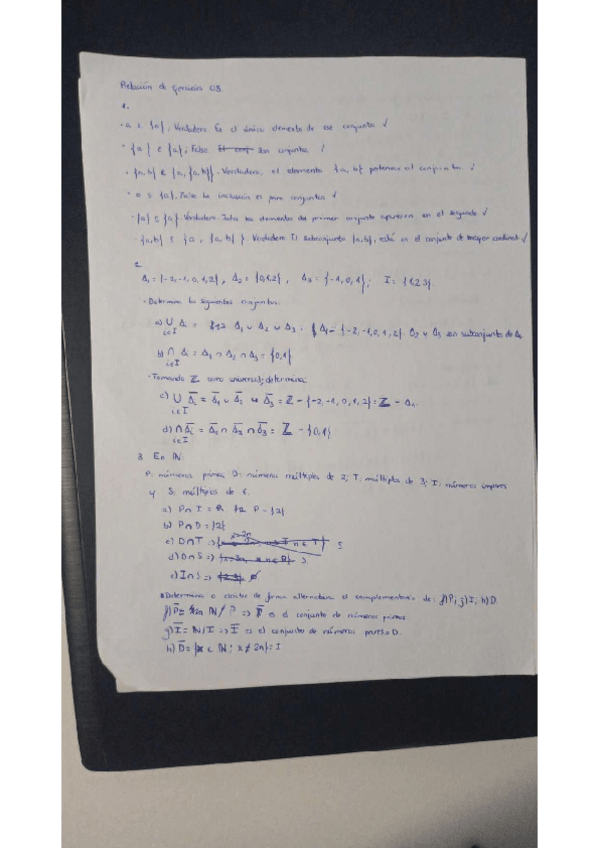 Relación de ejercicios 03
1.
· a ∈ {a}, Verdadero. Es el único elemento de ese conjunto ✓
· {a} ∈ {a}; Falso son conjuntos ✓
· {a,b} ∈ {a, {a,b}}. Verdadero, el elemento {a,b} pertenece al conjunto ✓
· a ⊆ {a}. Falso la inclusión es para conjuntos ✓
· {a} ⊆ {a}. Verdadero. Todos los elementos del primer conjunto aparecen en el segundo ✓
· {a,b} ⊆ {a, {a,b}}. Verdadero El subconjunto {a,b}, está en el conjunto de mayor cardinal ✓
2.
Δ₁ = {-2,-1,0,1,2}, Δ₂ = {0,1,2}, Δ₃ = {-1,0,1}; I = {1,2,3}.
· Determina los siguientes conjuntos:
a) ⋃ Δi = Δ₁ ∪ Δ₂ ∪ Δ₃ = Δ₁ = {-2,-1,0,1,2}. Δ₂ y Δ₃ son subconjunto de Δ₁
i∈I
b) ⋂ Δi = Δ₁ ∩ Δ₂ ∩ Δ₃ = {0,1}
i∈I
· Tomando ℤ como universal; determina:
c) ⋃ Δ̄i = Δ̄₁ ∪ Δ̄₂ ∪ Δ̄₃ = ℤ - {-2,-1,0,1,2} = ℤ - Δ₁
i∈I
d) ⋂ Δ̄i = Δ̄₁ ∩ Δ̄₂ ∩ Δ̄₃ = ℤ - {0,1}
i∈I
3. En ℕ:
P: números primos; D: números múltiplos de 2; T: múltiplos de 3; I: números impares
y S: múltiplos de 6.
a) P∩I = P - {2}
b) P∩D = {2}
c) D∩T => S
d) D∩S => S
e) I∩S => Ø
Determina o escribe de forma alternativa el complementario de: f) P; g) I; h) D.
f) P̄ = ℕ/P => P̄ es el conjunto de números primos
g) Ī = ℕ/I => Ī es el conjunto de números pares D.
h) D̄ = {x ∈ ℕ; x ≠ 2n} = I